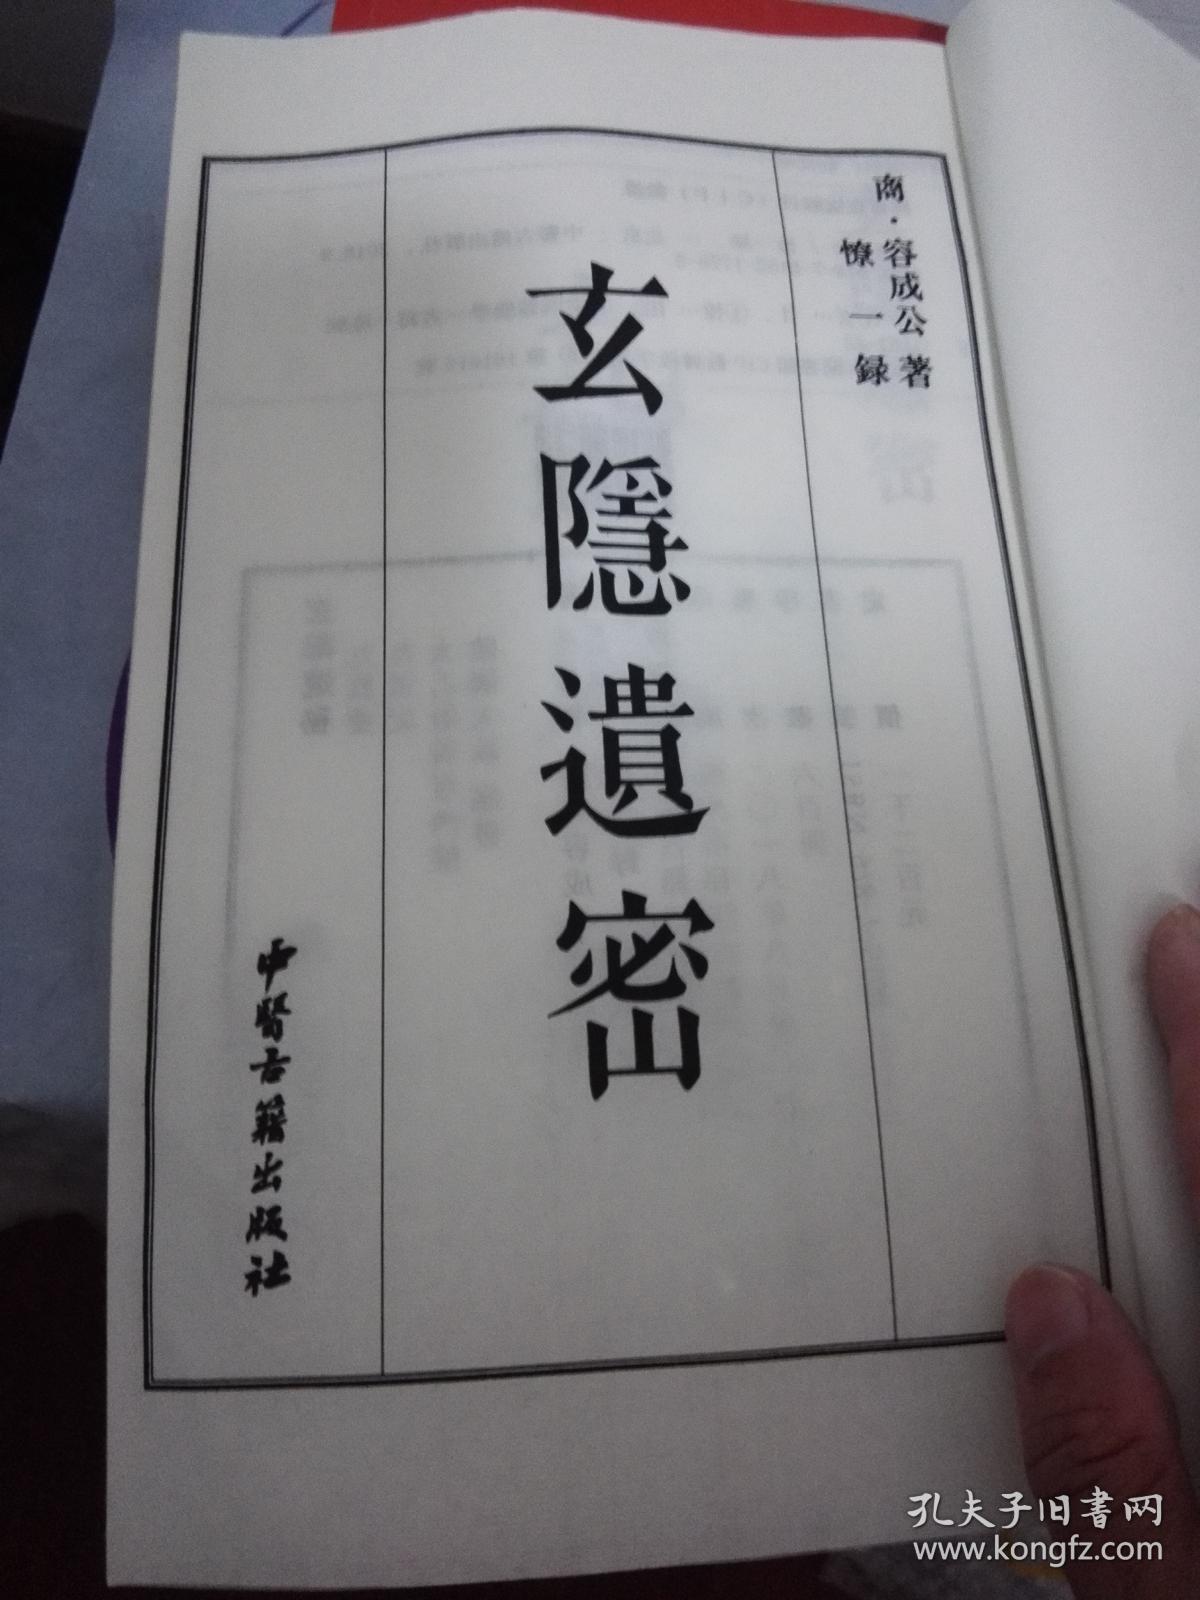 商·容成公著
憭一録
玄隱遺密
中醫古籍出版社
孔夫子旧书网
www.kongfz.com